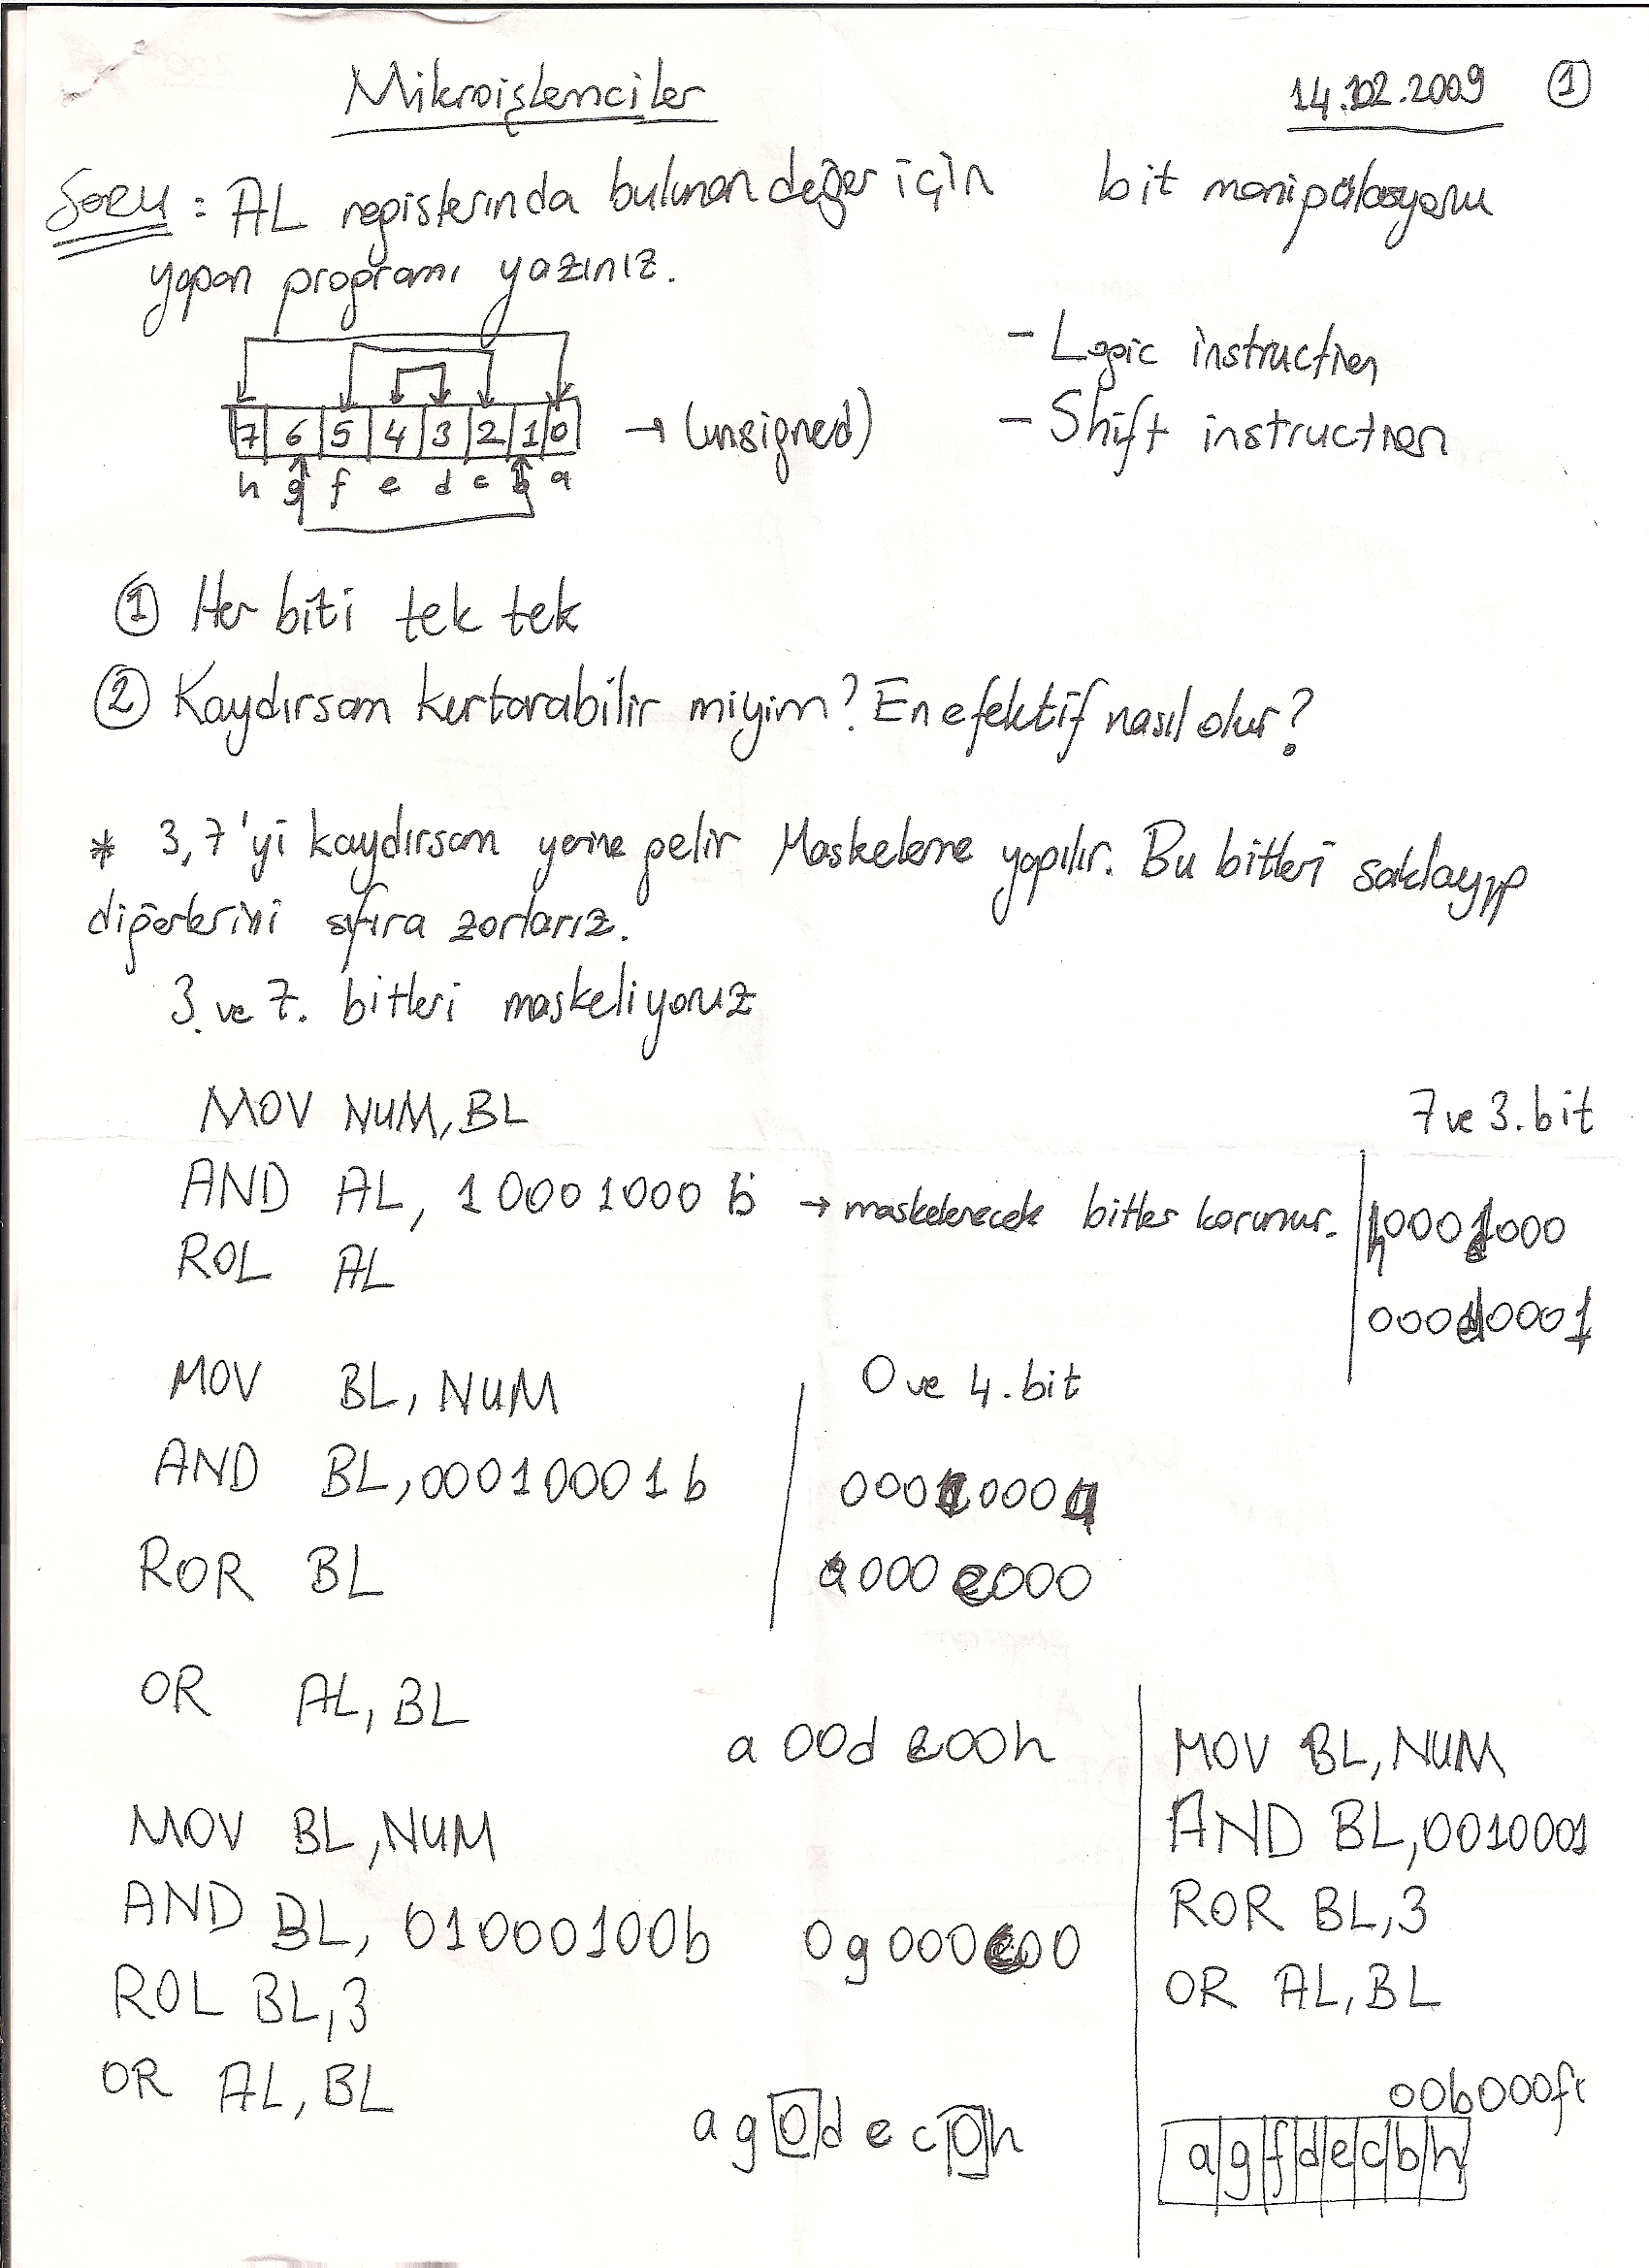 Mikroişlemciler
14.02.2009 ①
Soru : AL registerında bulunan değer için bit manipülasyonu
yapan programı yazınız.
- Logic instruction
7 6 5 4 3 2 1 0 → (unsigned)
- Shift instruction
h g f e d c b a
① Her biti tek tek
② Kaydırsam kurtarabilir miyim? En efektif nasıl olur?
* 3,7'yi kaydırsam yerine gelir Maskeleme yapılır. Bu bitleri saklayıp
diğerlerini sıfıra zorlarız.
3. ve 7. bitleri maskeliyoruz
MOV NUM, BL
7 ve 3. bit
AND AL, 10001000 b → maskelenecek bitler korunur.
h000d000
ROL AL
000d0001
MOV BL, NUM
0 ve 4. bit
AND BL, 00010001 b
000e000a
ROR BL
a000e000
OR AL, BL
a00de00h
MOV BL, NUM
AND BL, 01000100b
0g000c00
ROL BL,3
OR AL, BL
ag0dec0h
MOV BL, NUM
AND BL, 0010001
ROR BL,3
OR AL, BL
00b000f
a g f d e c b h